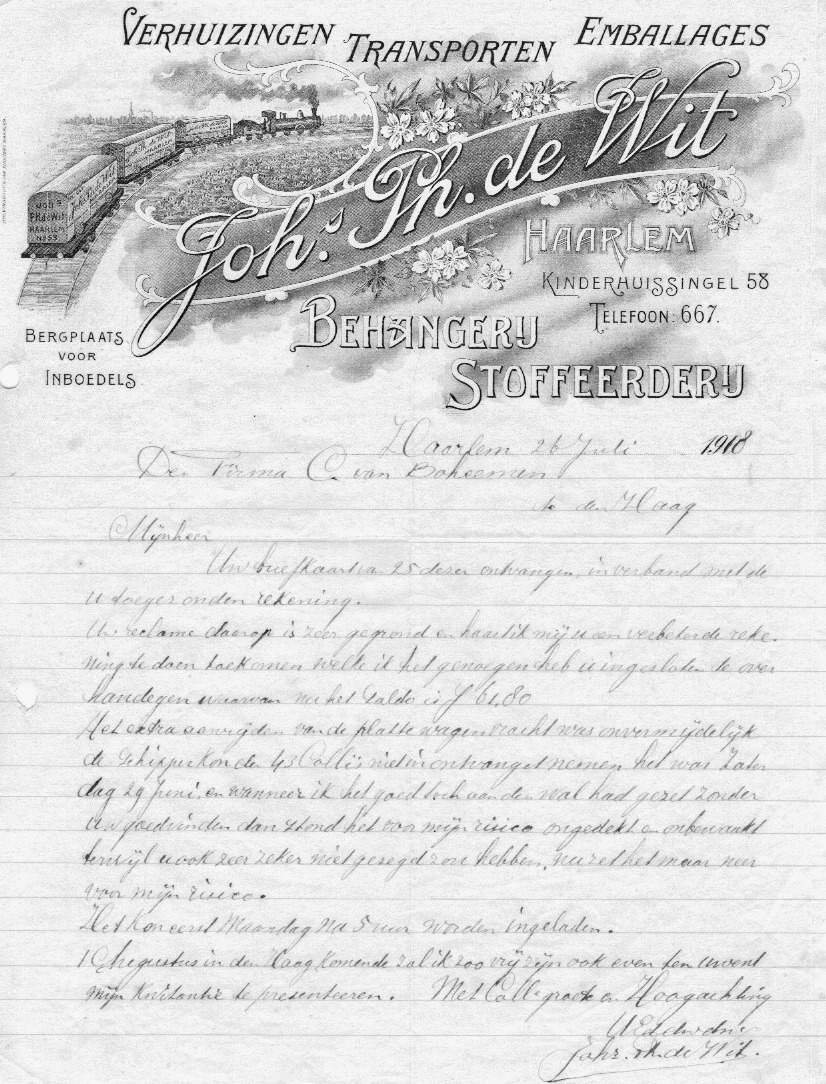 VERHUIZINGEN TRANSPORTEN EMBALLAGES
Joh.s Ph. de Wit
HAARLEM
KINDERHUISSINGEL 58
TELEFOON: 667.
BEHANGERIJ
STOFFEERDERIJ
BERGPLAATS
VOOR
INBOEDELS
JOH.S
PH. de Wit
HAARLEM
Haarlem 26 Juli 1918
Den Firma C. van Boheemen
te den Haag
Mijnheer
Uw briefkaart van 25 dezer ontvangen, in verband met de
u toegezonden rekening.
Uw reclame daarop is zeer gegrond en haast ik mij u een verbeterde reke-
ning te doen toekomen welke ik het genoegen heb u ingesloten te over
handegen waarvan nu het Saldo is f 61,80
Het extra aanrijden van de platte wagenvracht was onvermijdelijk
de Schipper kon de 43 Colli's niet in ontvangst nemen het was Zater
dag 29 Juni, en wanneer ik het goed toch aan den wal had gezet zonder
Uw goedvinden dan stond het voor mijn risico ongedekt en onbewaakt
terwijl u ook zeer zeker niet gezegd zou hebben, nu zet het maar neer
voor mijn risico.
Het kon eerst Maandag na 5 uur worden ingeladen.
1 Augustus in den Haag komende zal ik zoo vrij zijn ook even ten uwent
mijn kwitantie te presenteeren. Met Coll. groete en Hoogachting
UEd dwdnr
Johs. Ph. de Wit.